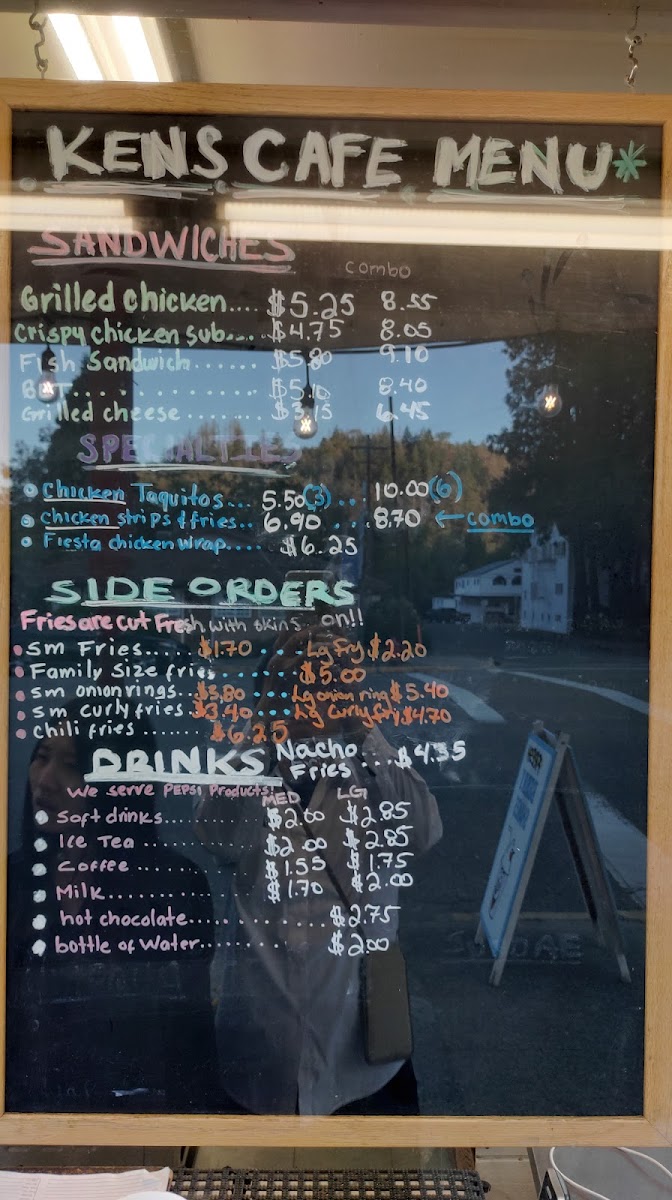 KENS CAFE MENU*
SANDWICHES
combo
Grilled chicken.... $5.25 8.55
Crispy chicken sub.... $4.75 8.05
Fish Sandwich...... $5.80 9.10
............ $5.10 8.40
Grilled cheese ....... $3.15 6.45
SPECIALTIES
Chicken Taquitos... 5.50(3)... 10.00(6)
chicken strips & fries.. 6.90 ... 8.70 ← combo
Fiesta chicken wrap.... $6.25
SIDE ORDERS
Fries are cut Fresh with skins on!!
sm Fries..... $1.70 .... Lg Fry $2.20
Family Size fries...... $5.00
sm onion rings... $3.80 .... Lg onion ring $5.40
sm curly fries. $3.40 .... Lg Curly fry $4.70
chili fries ....... $6.25
DRINKS Nacho Fries ... $4.35
We serve PEPSI Products!
MED LG
Soft drinks.......... $2.00 $2.85
Ice Tea .......... $2.00 $2.85
Coffee .......... $1.55 $1.75
Milk............. $1.70 $2.00
hot chocolate............ $2.75
bottle of water......... $2.00